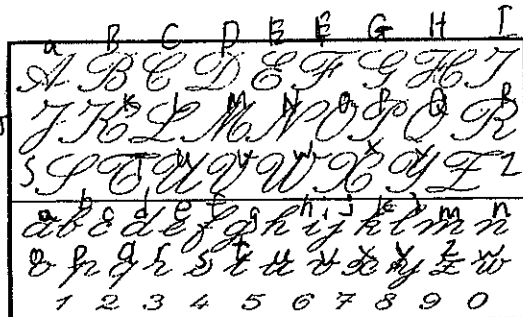 a B C D E F G H I
A B C D E F G H I
J K L M N O P Q R
J K L M N O P Q R
S T U V W X Y Z
S T U V W X Y Z
a b c d e f g h i j k l m n
a b c d e f g h i j k l m n
o p q r s t u v x y z w
o p q r t u v x y z
1 2 3 4 5 6 7 8 9 0